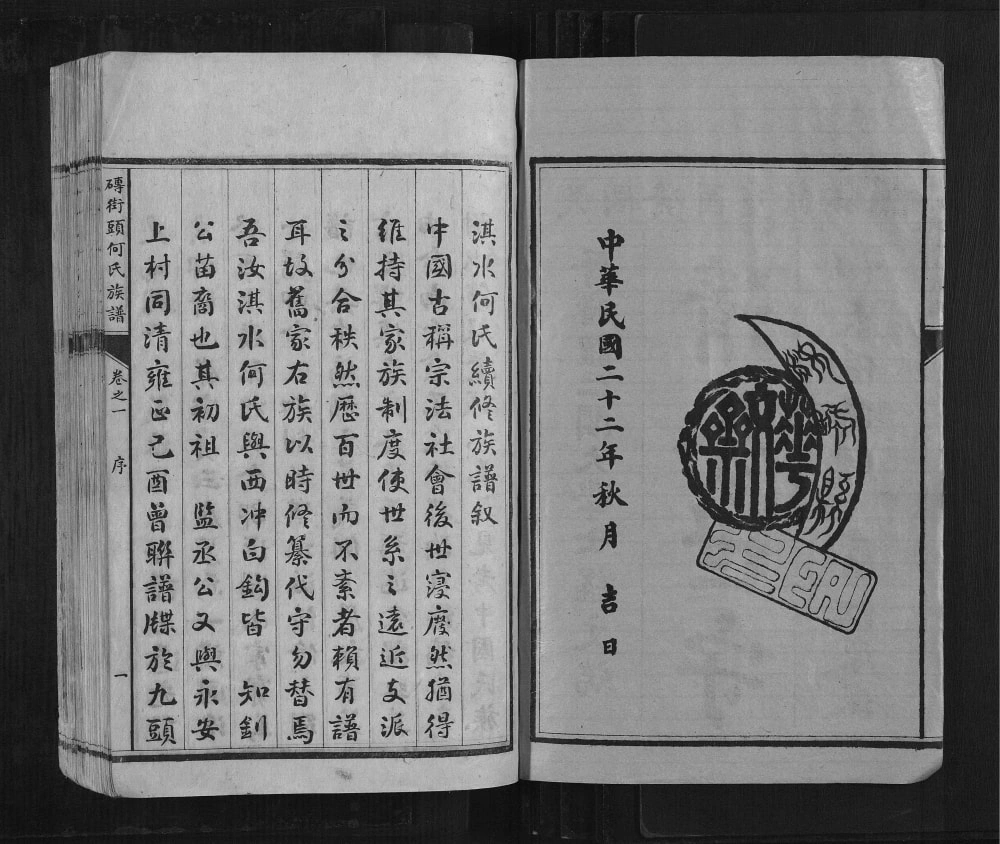 中華民國二十二年秋月 吉日
淇水何氏續修族譜叙
中國古稱宗法社會後世寖廢然猶得
維持其家族制度使世系之遠近支派
之分合秩然歷百世而不紊者賴有譜
耳故舊家右族以時修纂代守勿替焉
吾汝淇水何氏與西冲白鈎皆 知釗
公苗裔也其初祖 監丞公又與永安
上村同清雍正己酉曾聯譜牒於九頭
磚街頭何氏族譜
卷之一
序
一